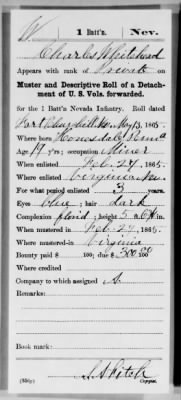 W 1 Batt'n. Nev.
Charles Whitehead
Appears with rank of Private on
Muster and Descriptive Roll of a Detach-
ment of U. S. Vols. forwarded.
for the 1 Batt'n Nevada Infantry. Roll dated
Fort Churchill Nev May 13, 1865.
Where born Honesdale Penna
Age 19 y'rs; occupation Miner
When enlisted Feb. 27, 1865.
Where enlisted Virginia Nev.
For what period enlisted 3 years.
Eyes blue; hair dark
Complexion florid; height 5 ft. 6 1/4 in.
When mustered in Feb. 27, 1865.
Where mustered in Virginia
Bounty paid $ 100; due $ 300.00 100
Where credited
Company to which assigned A
Remarks:
Book mark:
(356g)
Copyist.